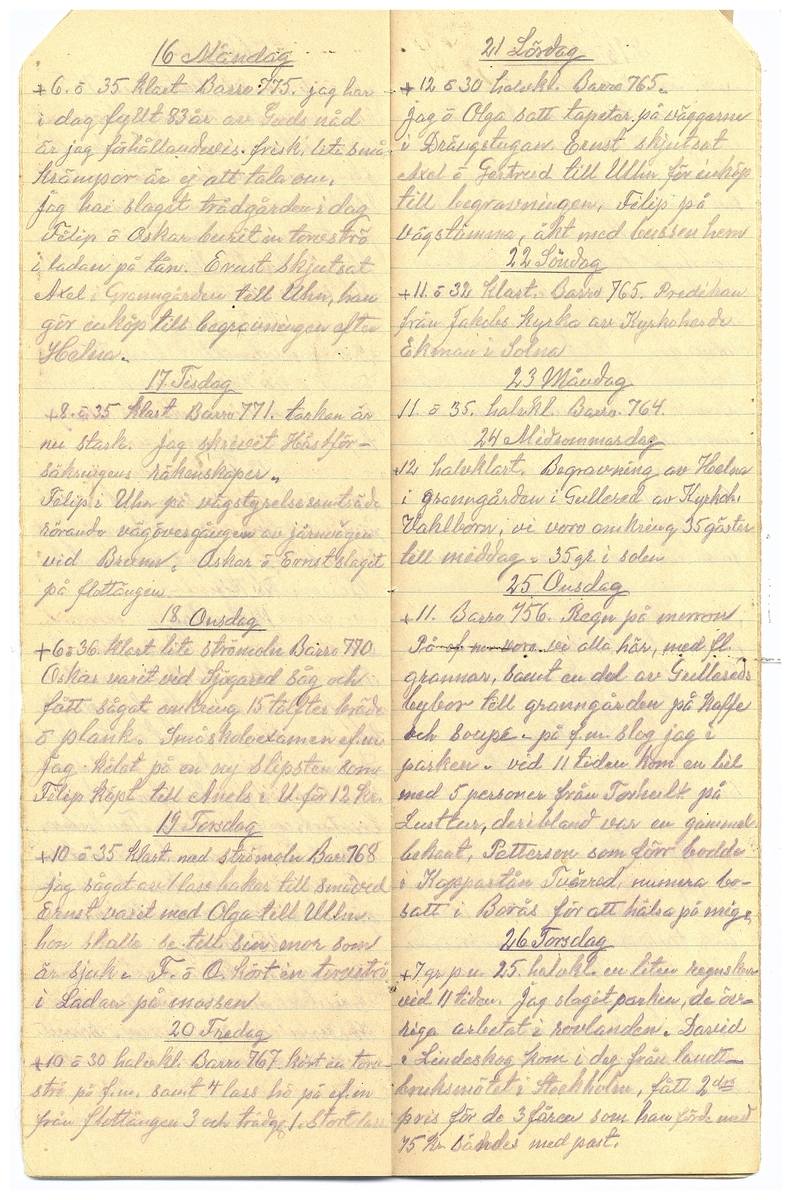 16 Måndag
+6. ō 35 klart Barro 775. jag har
i dag fyllt 83 år av Guds nåd
är jag förhållandevis frisk, lite små
krämpor är ej att tala om.
jag har slaget trädgården i dag
Filip ō Oskar burit in torvströ
i ladan på tån. Ernst skjutsat
Axel i Granngården till Ulhn, han
gör inköp till begravningen efter
Helna.
17 Tisdag
+8. ō 35 klart Barro 771. torkan är
nu stark. jag skrivet Hästför-
säkringens räkenskaper.
Filip i Ulhn på vägstyrelsesamträde
rörande vägövergången av järnvägen
vid Brunn. Oskar ō Ernst slagit
på flottängen
18. Onsdag
+6 ō 36. klart lite strömoln Barro 770
Oskar varit vid Sjögared såg och
fått sågat omkring 15 tolfter bräde
ō plank. Småskoleexamen ef.m
jag hålat på en ny slipsten som
Filip köpt till Axels i U. för 12 kr.
19 Torsdag
+10 ō 35 klart med strömoln Barr 768
jag sågat av 1 lass bakar till småved
Ernst varit med Olga till Ullhn.
hon skulle se till sin mor som
är sjuk. F. ō O. kört in torvströ
i Ladan på mossen
20 Fredag
+10 ō 30 halvkl. Barro 767 kört in torv-
strö på f.m. samt 4 lass hö på ef.m
från flottängen 3 och trädg. 1. stort lass
21 Lördag
+12 ō 30 halvkl. Barro 765.
jag ō Olga satt tapeter på väggarne
i Drängstugan. Ernst skjutsat
Axel ō Gertrud till Ulhn för inköp
till begravningen, Filip på
vägstämma, åkt med bussen hem
22 Söndag
+11. ō 32 klart. Barro 765. Predikan
från Jakobs kyrka av Kyrkoherde
Ekman i Solna
23 Måndag
11 ō 35. halvkl. Barro. 764.
24 Midsommarsdag
+12 halvklart. Begravning av Helna
i granngården i Gullered av Kyrkoh.
Wahlborn, vi voro omkring 35 gäster
till middag. 35 gr. i solen
25 Onsdag
+11. Barro 756. Regn på morron
På ef m voro vi alla här, med fl.
grannar, samt en del av Gullereds
bybor till granngården på kaffe
och soupe. på f.m. slog jag i
parken. vid 11 tiden kom en bil
med 5 personer från Torhult på
Lusttur, deribland var en gammal
bekant, Petterson som förr bodde
i Koppartån Tvärred, numera bo-
satt i Borås för att hälsa på mig.
26 Torsdag
+7 gr p.u. 25. halvkl. en liten regnskur
vid 11 tiden. Jag slaget parken, de öv-
riga arbetat i rovlanden. David
i Lindeskog kom i dag från landt-
bruksmötet i Stockholm, fått 2dra
pris för de 3 fåren som han förde med
75 kr. sändes med post.